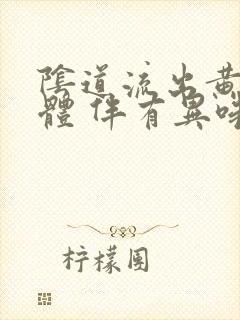 陰道流出黃
體 伴有異味
柠檬圕